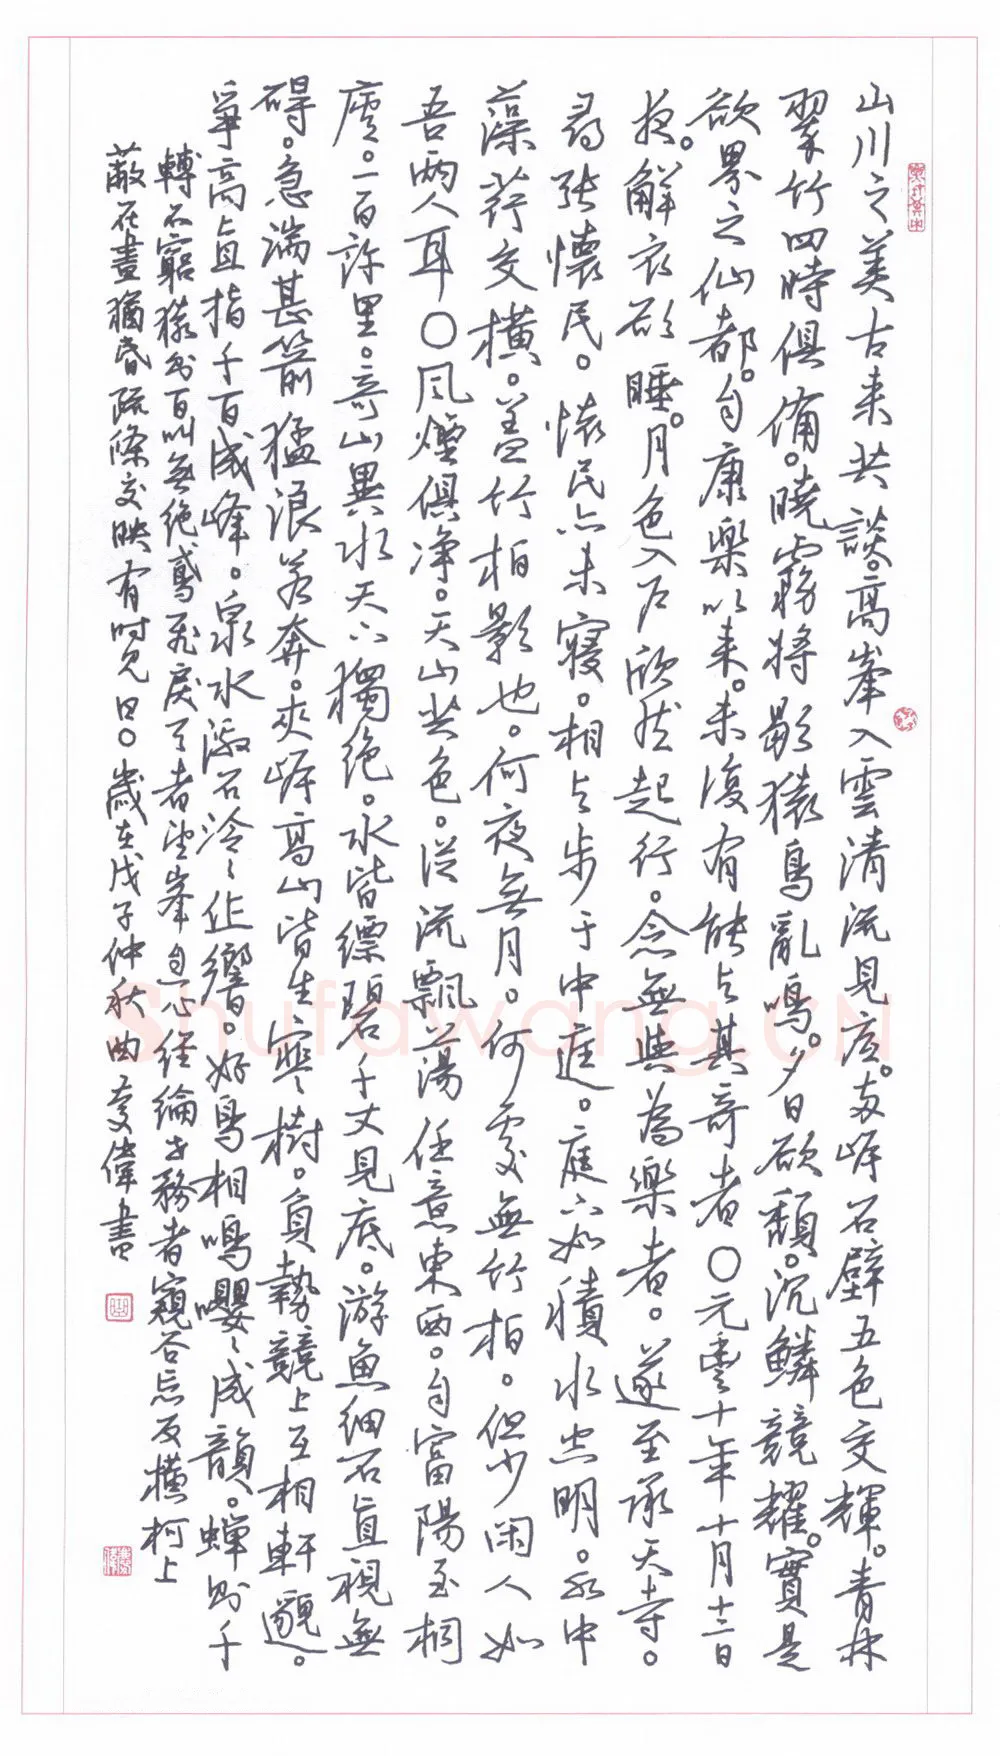 山川之美古来共談。高峯入雲清流見底。兩岸石壁五色交輝。青林
翠竹四時俱備。曉霧將歇猿鳥亂鳴。夕日欲頹。沉鱗競耀。實是
欲界之仙都。自康樂以来。未復有能与其奇者〇元豐十年十月十二日
夜。解衣欲睡。月色入户欣然起行。念無與為樂者。遂至承天寺。
尋張懷民。懷民亦未寢。相与步于中庭。庭下如積水空明。水中
藻荇交橫。蓋竹柏影也。何夜無月。何處無竹柏。但少閑人如
吾兩人耳〇風煙俱净。天山共色。從流飄蕩任意東西。自富陽至桐
廬。一百許里。奇山異水天下獨绝。水皆缥碧千丈見底。游魚細石直視無
碍。急湍甚箭猛浪若奔。夾岸高山皆生寒樹。負勢競上互相軒邈。
爭高直指千百成峰。泉水激石泠〻作響。好鳥相鳴嚶〻成韻。蟬则千
轉不窮猿则百叫無绝鳶飛戾天者望峯息心經綸世務者窺谷忘反橫柯上
蔽在晝猶昏疏條交映有时見日〇歲在戊子仲秋曲慶偉書
Shufawang.CN